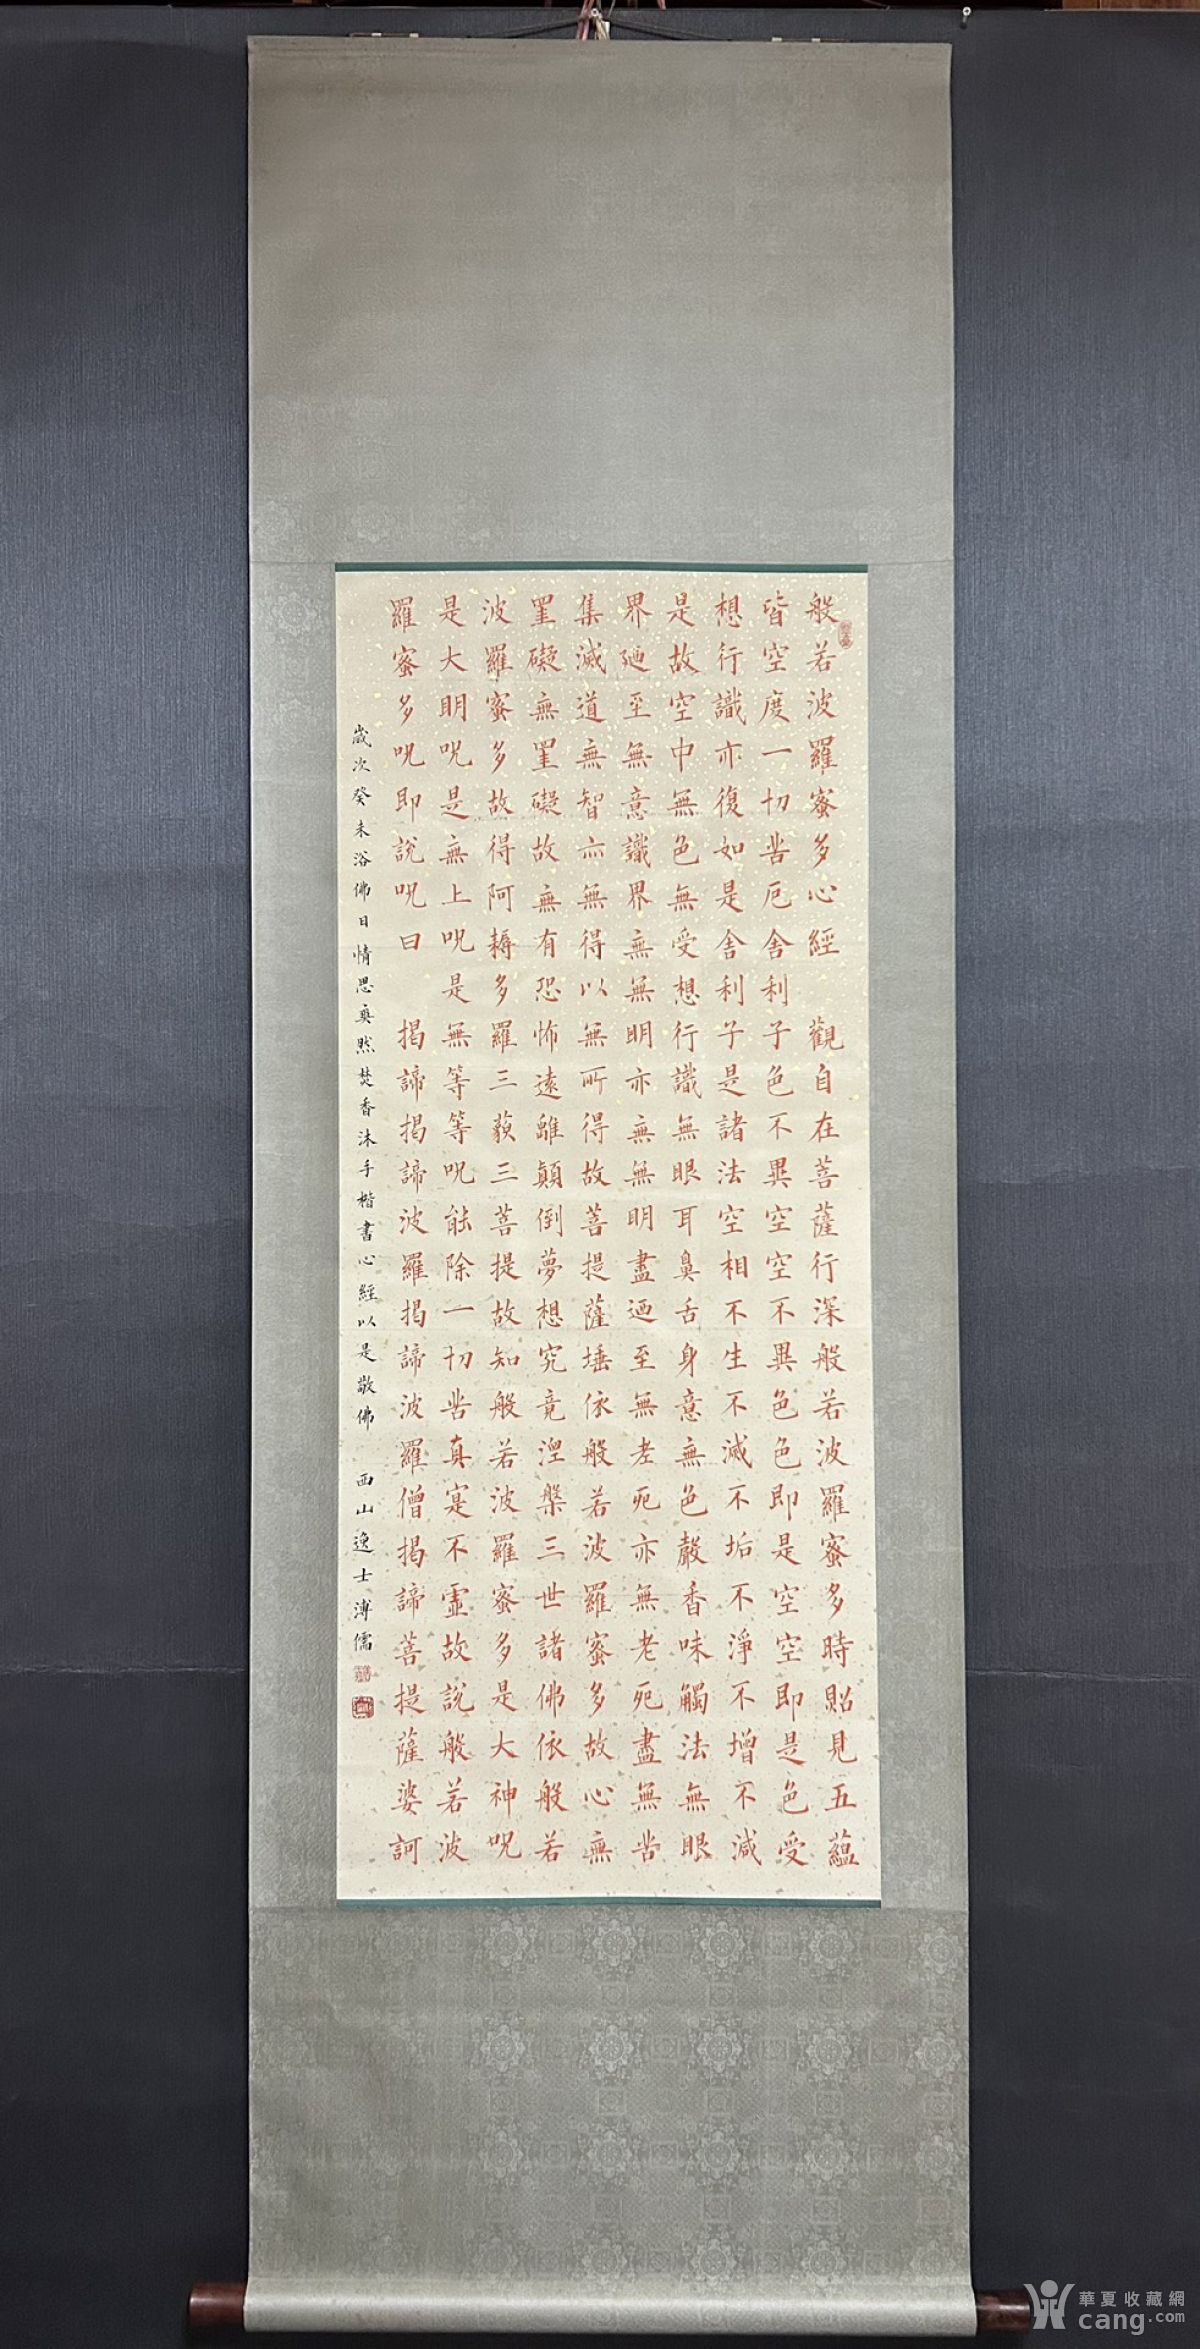 般若波羅蜜多心經　觀自在菩薩行深般若波羅蜜多時照見五蘊
皆空度一切苦厄舍利子色不異空空不異色色即是空空即是色受
想行識亦復如是舍利子是諸法空相不生不滅不垢不淨不增不減
是故空中無色無受想行識無眼耳鼻舌身意無色聲香味觸法無眼
界迺至無意識界無無明亦無無明盡迺至無老死亦無老死盡無苦
集滅道無智亦無得以無所得故菩提薩埵依般若波羅蜜多故心無
罣礙無罣礙故無有恐怖遠離顛倒夢想究竟涅槃三世諸佛依般若
波羅蜜多故得阿耨多羅三藐三菩提故知般若波羅蜜多是大神咒
是大明咒是無上咒是無等等咒能除一切苦真寔不虛故說般若波
羅蜜多咒即說咒曰　揭諦揭諦波羅揭諦波羅僧揭諦菩提薩婆訶
歲次癸未浴佛日情思爽然焚香沐手楷書心經以是敬佛　西山逸士溥儒
華夏收藏網
cang.com